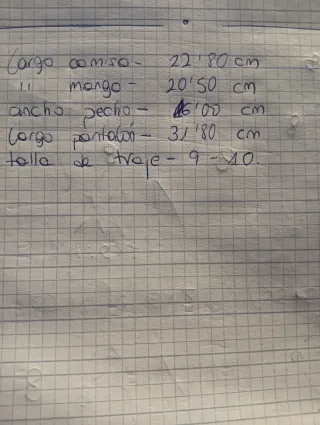 Largo camisa - 22'80 cm
" mango - 20'50 cm
ancho pecho - 16'00 cm
Largo pantalón - 31'80 cm
talla de traje - 9 - 10.